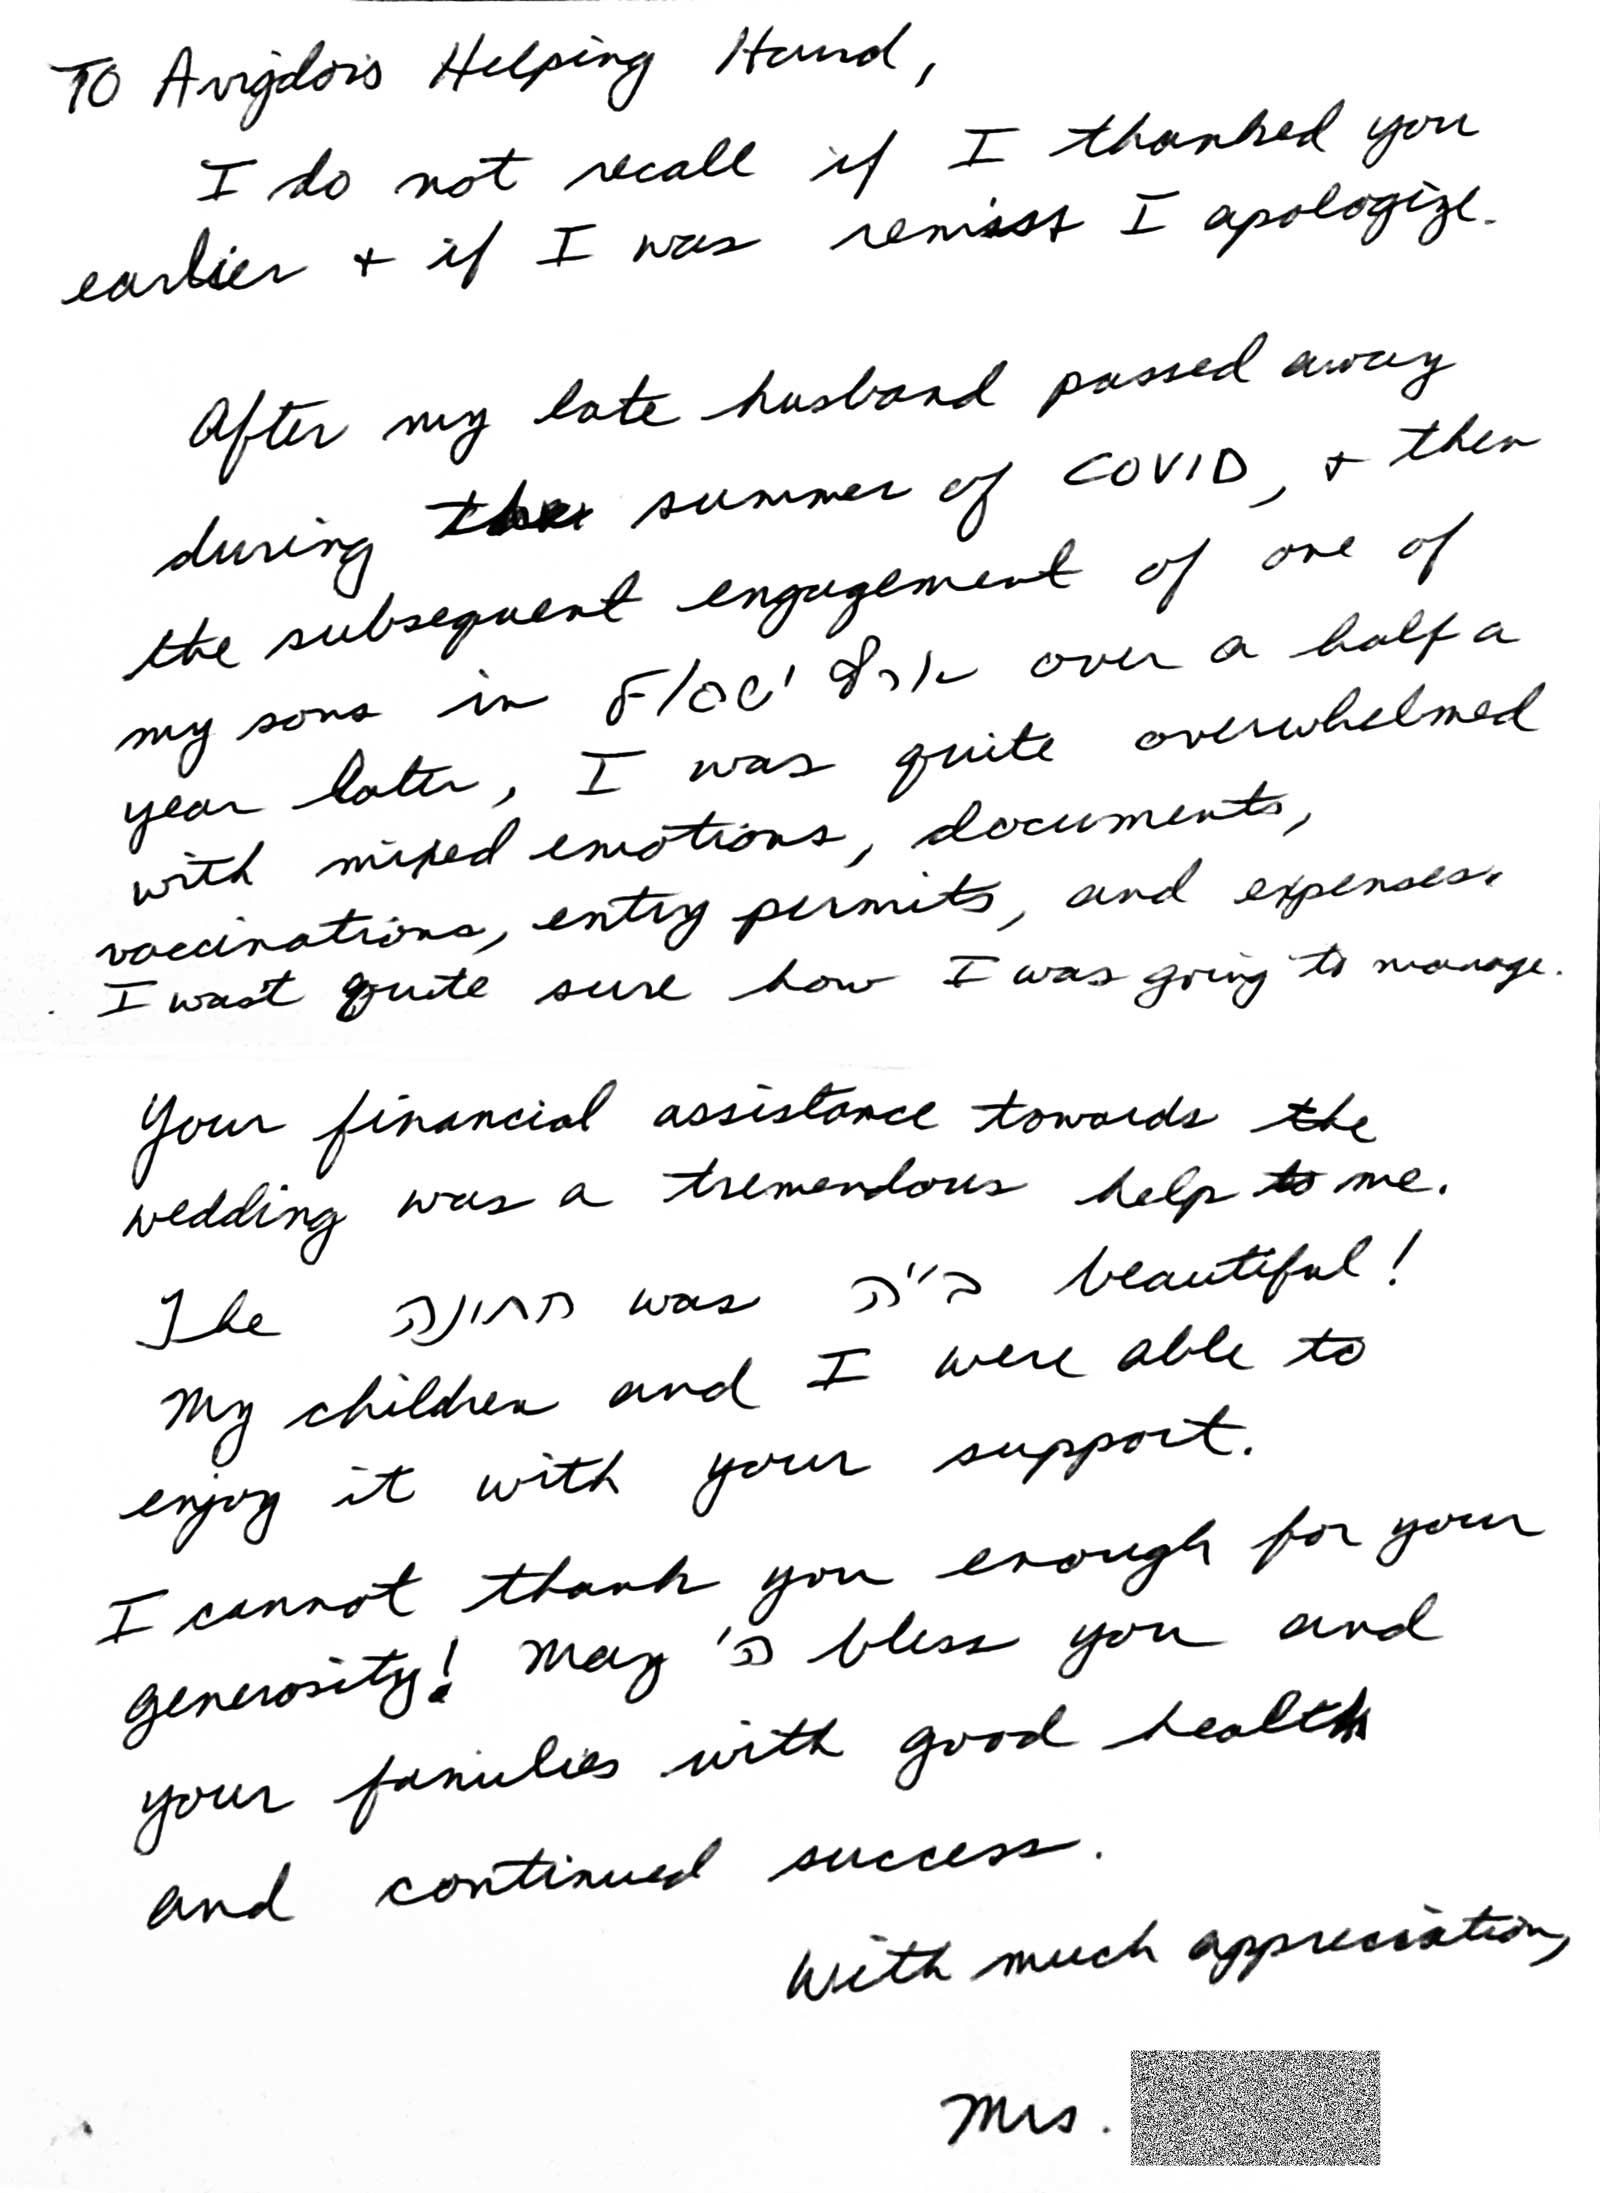 To Avigdor's Helping Hand,
I do not recall if I thanked you
earlier + if I was remiss I apologize.
After my late husband passed away
during the summer of COVID, + then
the subsequent engagement of one of
my sons in ארץ ישראל over a half a
year later, I was quite overwhelmed
with mixed emotions, documents,
vaccinations, entry permits, and expenses.
I was't quite sure how I was going to manage.
Your financial assistance towards the
wedding was a tremendous help to me.
The חתונה was ב"ה beautiful!
My children and I were able to
enjoy it with your support.
I cannot thank you enough for your
generosity! May ה' bless you and
your families with good health
and continued success.
With much appreciation,
Mrs.